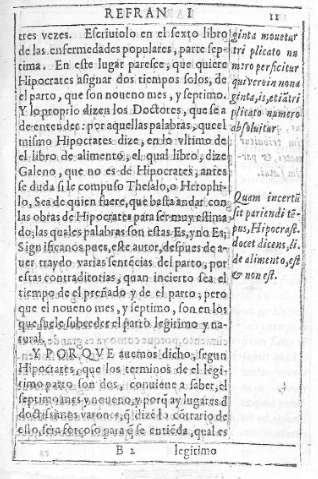 REFRAN I
11
tres vezes. Escriuiolo en el sexto libro
de las enfermedades populares, parte sep-
tima. En este lugar paresce, que quiere
Hipocrates asignar dos tiempos solos, de
el parto, que son noueno mes, y septimo.
Y lo proprio dizen los Doctores, que se a
de entender: por aquellas palabras, que el
mismo Hipocrates dize, en lo vltimo de
el libro de alimento, el qual libro, dize
Galeno, que no es de Hipocrates, antes
se duda si le compuso Thesalo, o Herophi-
lo, Sea de quien fuere, que basta andar con
las obras de Hipocrates para ser muy estima
do; las quales palabras son estas Es, y no Es;
Significanos pues, este autor, despues de a-
uer traydo varias sentēcias del parto, por
estas contraditorias, quan incierto sea el
tiempo de el preñado y de el parto; pero
que el noueno mes, y septimo, son en los
que suele suceder el parto legitimo y na-
tural.
Y PORQVE auemos dicho, segun
Hipocrates, que los terminos de el legi-
timo parto son dos, conuiene a saber, el
septimo mes y noueno; y porq̄ ay lugares d̄
doctissimos varones, q̄ dizē lo cōtrario de
ello, sera forçoso para q̄ se entiēda, qual es
B 2 legitimo
ginta mouetur
tri plicato nu
mero perficitur
qui verò in nona
ginta, is, etiā tri
plicato numero
absoluitur.
Quam incertū
sit pariendi tē-
pus, Hipocras.
docet dicens, li.
de alimento, est
& non est.